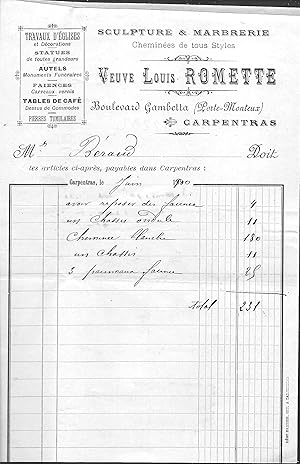 SCULPTURE & MARBRERIE
Cheminées de tous Styles
VEUVE LOUIS ROMETTE
Boulevard Gambetta (Porte-Monteux)
CARPENTRAS
TRAVAUX D'ÉGLISES
et Décorations
STATUES
de toutes grandeurs
AUTELS
Monuments Funéraires
FAIENCES
Carreaux vernis
TABLES DE CAFÉ
Dessus de Commodes
PIERRES TUMULAIRES
Mr Béraud Doit
les articles ci-après, payables dans Carpentras :
Carpentras, le Juin 1900
avoir reposer des faience 4
un Chassis 11
Cheminee Blanche 180
un chassis 11
3 panneaux faience 25
total 231